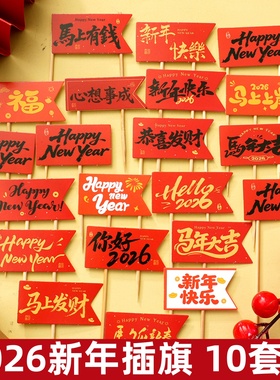 馬上有錢
新年
快樂
Happy New Year
福
心想事成
Happy New Year
新年快乐
2026
2026
马上
Happy
New Year
恭喜发财
Happy New Year
馬年大吉
2026
Happy
New Year
Happy
New Year
Hello
2026
Happy
New Year
Happy
New Year
你好
2026
马年大吉
马上发财
新年
快乐
2026新年插旗 10套